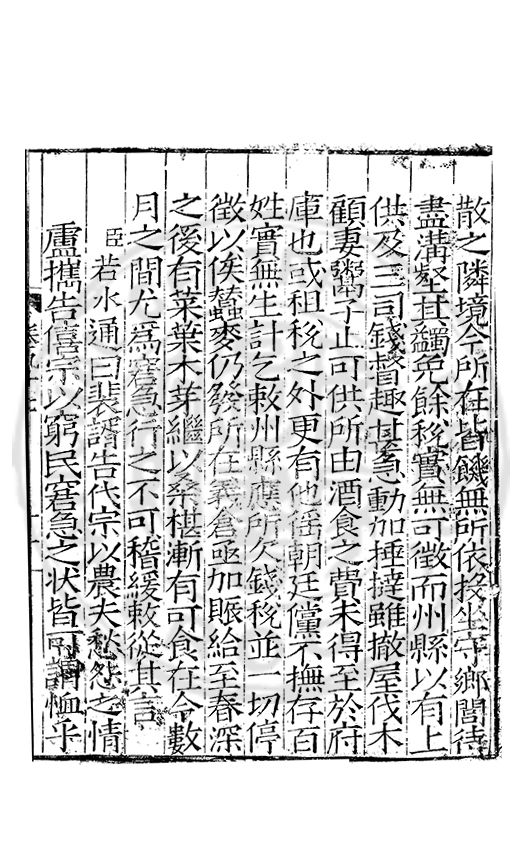 散之隣境今所在皆饑無所依投坐守鄉閭待
盡溝壑其蠲免餘稅實無可徵而州縣以有上
供及三司錢督趣甚急動加捶撻雖撤屋伐木
顧妻鬻子止可供所由酒食之費未得至於府
庫也或租稅之外更有他徭朝廷儻不撫存百
姓實無生計乞敕州縣應所欠錢稅並一切停
徵以俟蠶麥仍發所在義倉亟加賑給至春深
之後有菜葉木芽繼以桑椹漸有可食在今數
月之間尤爲窘急行之不可稽緩敕從其言
臣若水通曰裴諝告代宗以農夫愁怨之情
盧攜告僖宗以窮民窘急之狀皆可謂恤乎